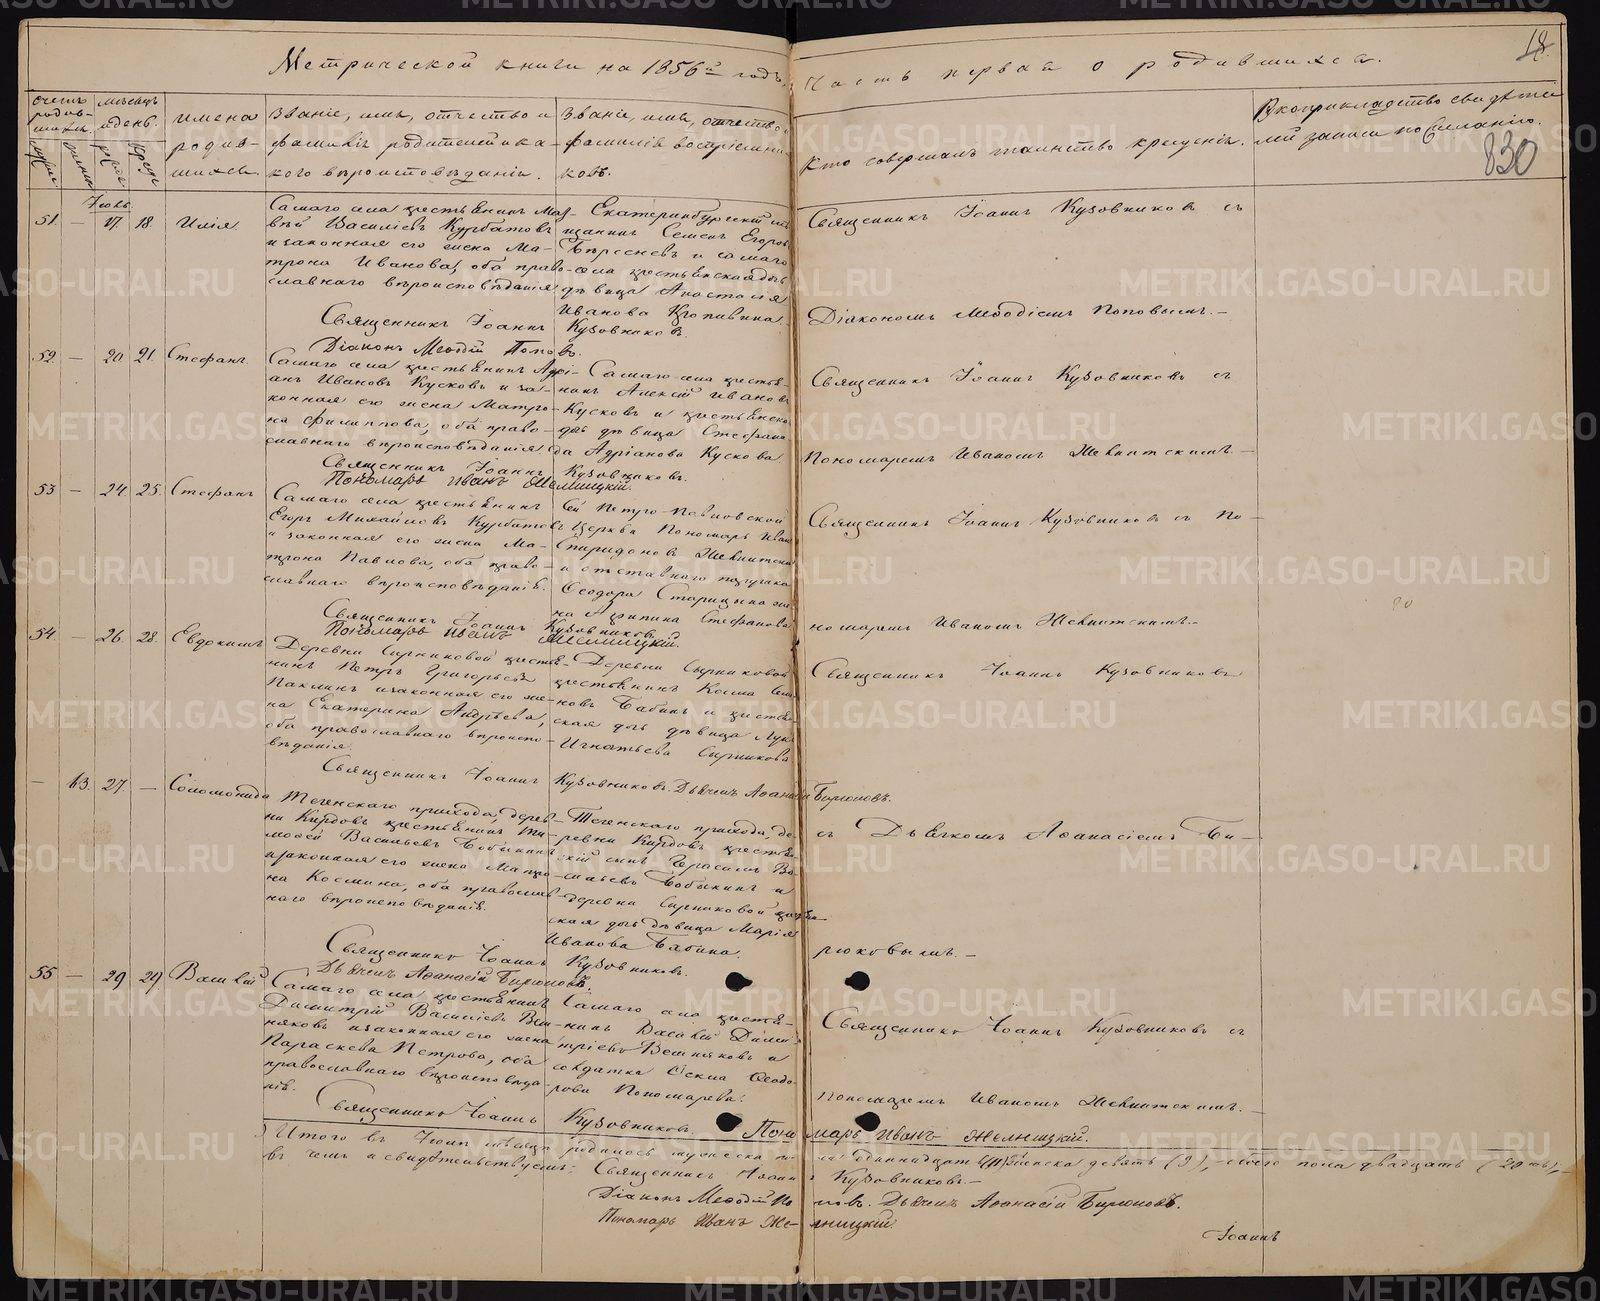 Метрической книги на 1856й годъ, Часть первая о родившихся.
18
830
Счетъ родив-шихся.
Мѣсяцъ и день.
Имена родив-шихся.
Званіе, имя, отчество и фамилія родителей и ка-кого вѣроисповѣданія.
Званіе, имя, отчество и фамилія воспріемни-ковъ.
Кто совершалъ таинство крещенія.
Рукоприкладство свидѣте-лей записи по желанію.
Іюль
51. — 17. 18. Илія.
Самаго села крестьянинъ Мат-
вѣй Василіевъ Курбатовъ
и законная его жена Ма-
трона Иванова, оба право-
славнаго вѣроисповѣданія
Екатеринбургскій мѣ-
щанинъ Семенъ Егоровъ
и самаго
села крестьянская дочь
дѣвица Анастасія
Иванова
Священникъ Іоаннъ Кузовниковъ съ
Діакономъ Меѳодіемъ Поповымъ. —
Священникъ Іоаннъ Кузовниковъ.
Діаконъ Меѳодій Поповъ.
52. — 20 21. Стефанъ.
Самаго села крестьянинъ Адрі-
анъ Ивановъ Кусковъ и за-
конная его жена Матро-
на Филиппова, оба право-
славнаго вѣроисповѣданія
Самаго села крестья-
нинъ Алексій Ивановъ
Кусковъ и крестьянская
дочь дѣвица Стефани-
да Адріанова Кускова
Священникъ Іоаннъ Кузовниковъ съ
Пономаремъ Иваномъ
Священникъ Іоаннъ Кузовниковъ.
Пономарь Иванъ
53 — 24. 25. Стефанъ
Самаго села крестьянинъ
Егоръ Михайловъ Курбатовъ
и законная его жена Ма-
трона Павлова, оба право-
славнаго вѣроисповѣданія.
Сей Петро-Павловской
Церкви Пономарь Иванъ
Спиридоновъ
и отставнаго
Ѳеодора Старицына же-
на Агрипина Стефанова
Священникъ Іоаннъ Кузовниковъ съ По-
номаремъ Иваномъ
Священникъ Іоаннъ Кузовниковъ.
Пономарь Иванъ
54. — 26. 28. Евдокимъ
Деревни Сырниковой крестья-
нинъ Петръ Григорьевъ
Паклинъ и законная его же-
на Екатерина Андреева,
оба православнаго вѣроиспо-
вѣданія.
Деревни Сырниковой
крестьянинъ Косма
Бабинъ и крестьян-
ская дочь дѣвица
Игнатьева Сырникова
Священникъ Іоаннъ Кузовниковъ
Священникъ Іоаннъ Кузовниковъ. Дьячекъ Аѳанасій Бирюковъ.
— 13. 27. — Соломонида
Тегенскаго прихода, дерев-
ни Кирдовъ крестьянинъ Ти-
моѳей Васильевъ Бабыкинъ
и законная его жена Матро-
на Космина, оба православ-
наго вѣроисповѣданія.
Тегенскаго прихода, де-
ревни Кирдовъ крестьян-
скій сынъ Герасимъ Ва-
сильевъ Бабыкинъ и
деревни Сырниковой крестьян-
ская дочь дѣвица Марія
Иванова Бабина.
съ Дьячкомъ Аѳанасіемъ Би-
рюковымъ. —
Священникъ Іоаннъ Кузовниковъ.
Дьячекъ Аѳанасій Бирюковъ.
55 — 29 29. Василій
Самаго села крестьянинъ
Димитрій Василіевъ Веш-
няковъ и законная его жена
Параскева Петрова, оба
православнаго вѣроисповѣда-
нія.
Самаго села крестья-
нинъ Василій Дими-
тріевъ Вешняковъ и
солдатка Ѳекла Ѳеодо-
рова Пономарева.
Священникъ Іоаннъ Кузовниковъ съ
пономаремъ Иваномъ
Священникъ Іоаннъ Кузовниковъ. Пономарь Иванъ
Итого въ Іюлѣ мѣсяцѣ родилось мужеска по-ла одиннадцать (11) женска девять (9), обоего пола двадцать (20);
въ чемъ и свидѣтельствуемъ: Священникъ Іоаннъ Кузовниковъ. —
Діаконъ Меѳодій Поповъ. Дьячекъ Аѳанасій Бирюковъ.
Пономарь Иванъ
Іоаннъ
METRIKI.GASO-URAL.RU